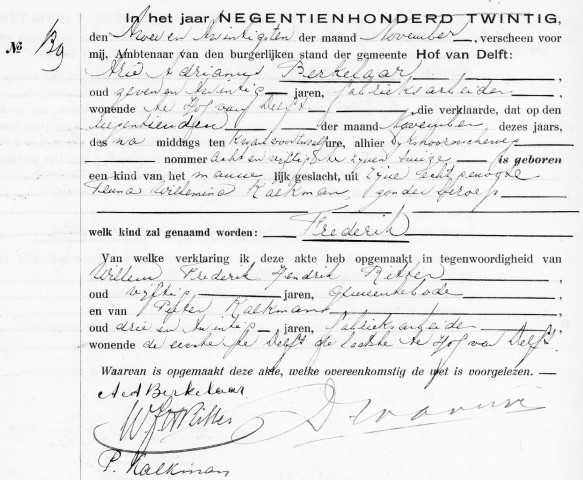 In het jaar NEGENTIENHONDERD TWINTIG,
№ 139
den twintigsten der maand November, verscheen voor
mij, Ambtenaar van den burgerlijken stand der gemeente Hof van Delft:
Arie Adrianus Berkelaar
oud zeven en twintig jaren, fabrieksarbeider
wonende te Hof van Delft die verklaarde, dat op den
negentienden der maand November dezes jaars,
des na middags ten ure, alhier
nommer acht en vijftig te zijnen huize is geboren
een kind van het mannelijk geslacht, uit zijne echtgenoote
Willemina Kalkman, zonder beroep
welk kind zal genaamd worden: Frederik
Van welke verklaring ik deze akte heb opgemaakt in tegenwoordigheid van
Willem Frederik Hendrik Ritter
oud vijftig jaren, gemeentebode
en van Pieter Kalkman
oud drie en twintig jaren, fabrieksarbeider
wonende de eerste te Delft de laatste te Hof van Delft.
Waarvan is opgemaakt deze akte, welke overeenkomstig de wet is voorgelezen.
A. A Berkelaar
W F H Ritter
P. Kalkman